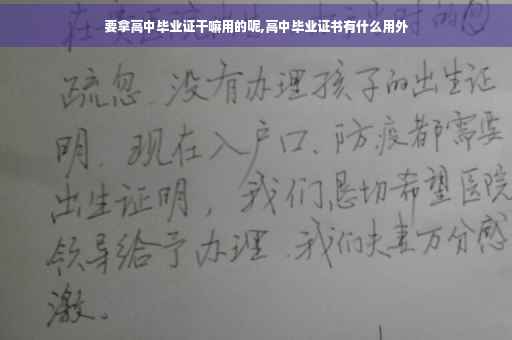 要拿高中毕业证干嘛用的呢,高中毕业证书有什么用外
疏忽、没有办理孩子的出生证
明、现在入户口、防疫都需要
出生证明，我们恳切希望医院
领导给予办理、我们夫妻万分感
激。